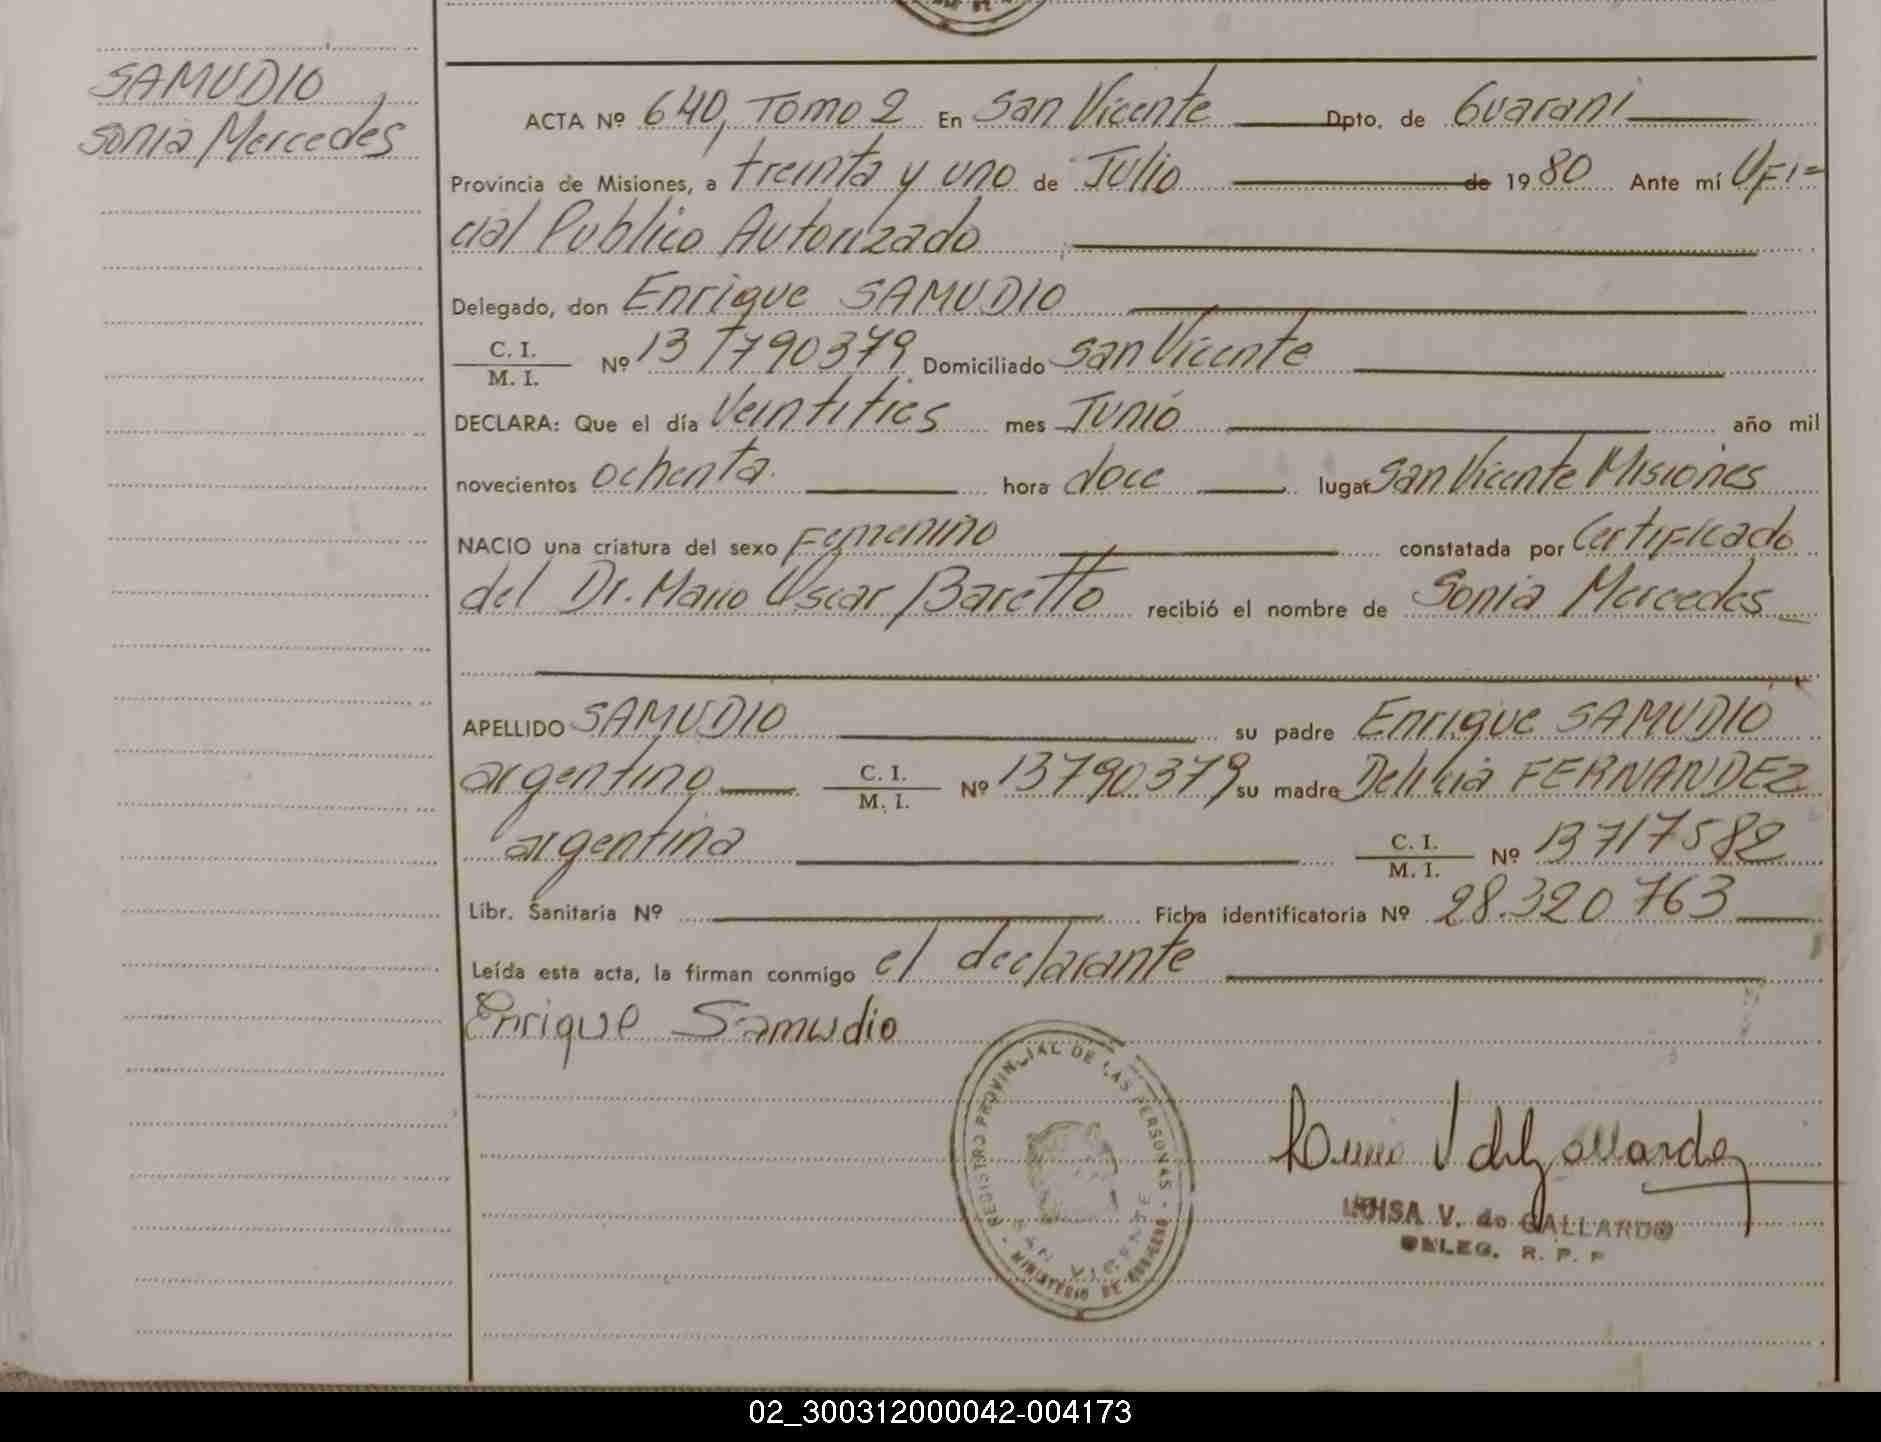 SAMUDIO
Sonia Mercedes
ACTA Nº 640, Tomo 2 En San Vicente Dpto. de Guarani
Provincia de Misiones, a treinta y uno de Julio de 1980 Ante mí Ofi=
cial Publico Autorizado
Delegado, don Enrique SAMUDIO
C. I.
M. I. Nº 13790379 Domiciliado San Vicente
DECLARA: Que el día Veintitres mes Junio año mil
novecientos ochenta hora doce lugar San Vicente Misiones
NACIO una criatura del sexo Femenino constatada por Certificado
del Dr. Mario Oscar Baretto recibió el nombre de Sonia Mercedes
APELLIDO SAMUDIO su padre Enrique SAMUDIO
argentino C. I. M. I. Nº 13790379 su madre Delicia FERNANDEZ
argentina C. I. M. I. Nº 13717582
Libr. Sanitaria Nº Ficha identificatoria Nº 28.320 763
Leída esta acta, la firman conmigo el declarante
Enrique Samudio
REGISTRO PROVINCIAL DE LAS PERSONAS - MINISTERIO DE GOBIERNO -
SAN VICENTE
V de Gallardo
LUISA V. de GALLARDO
DELEG. R. P. P
02_300312000042-004173